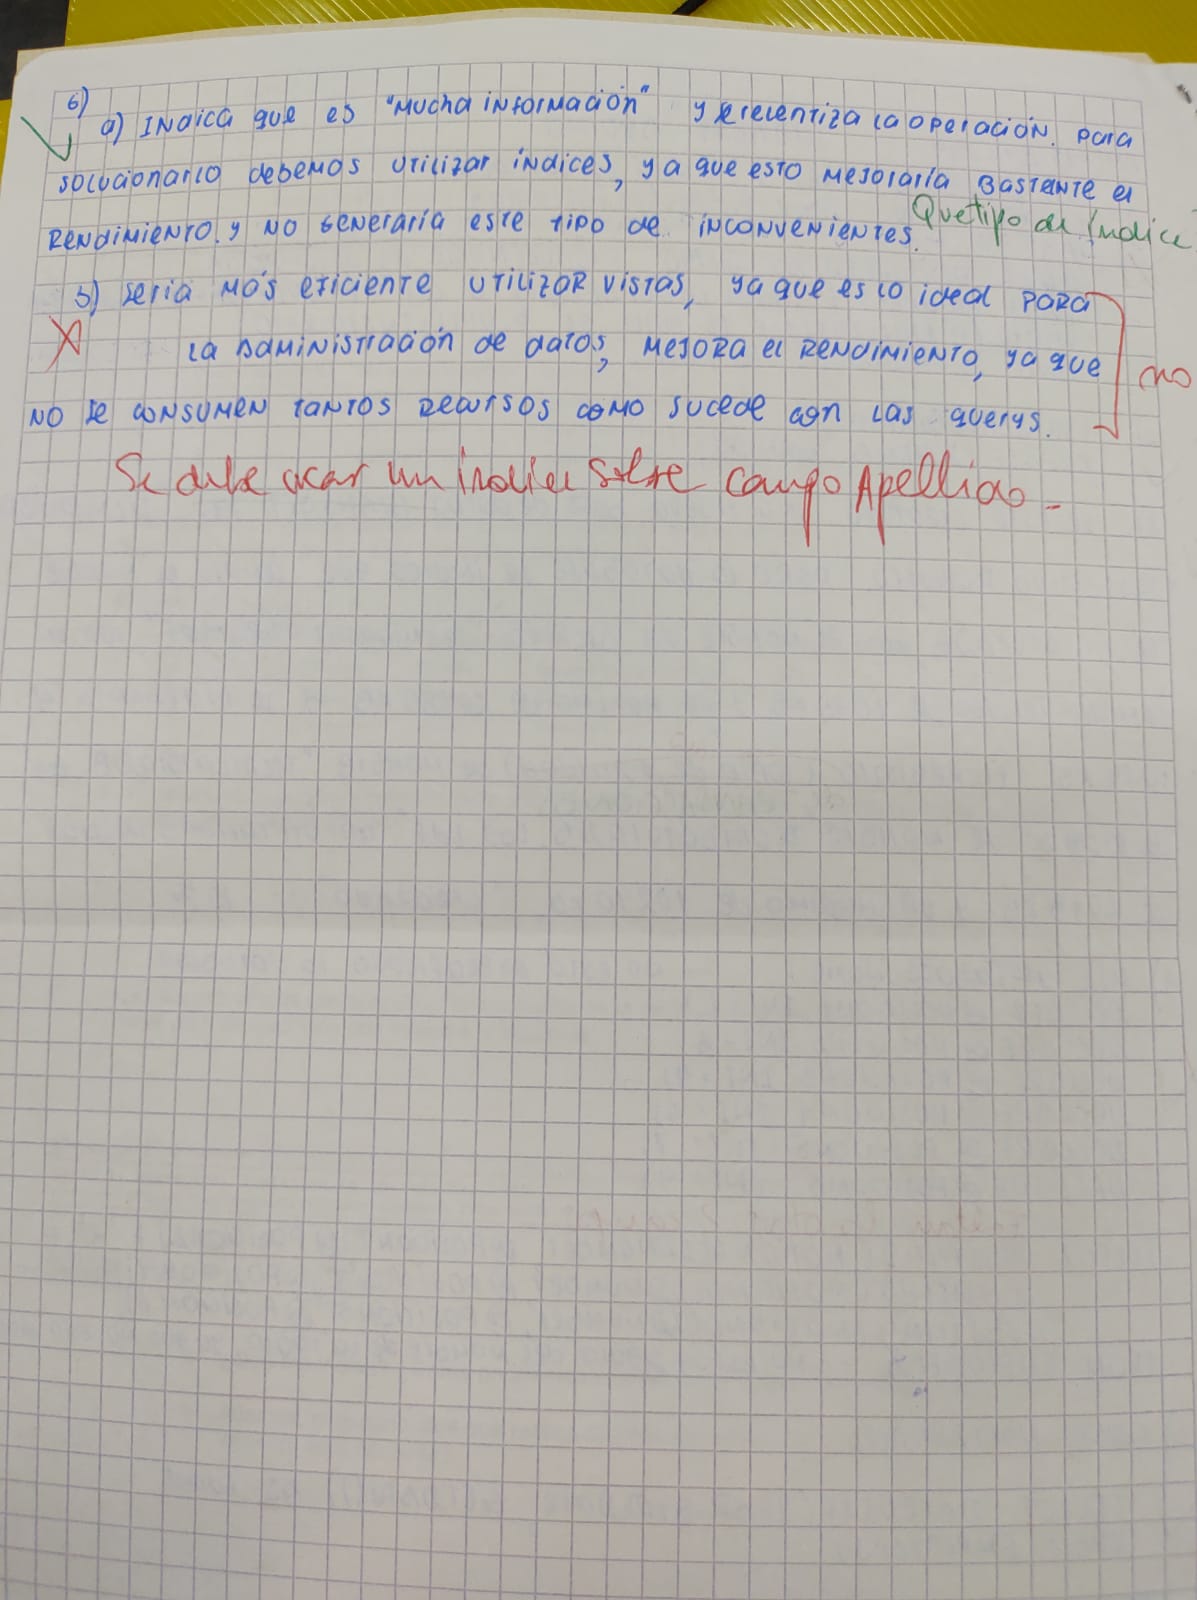 6)
a) Indica que es "mucha información" y se relentiza la operación. Para
solucionarlo debemos utilizar índices, ya que esto mejoraría bastante el
rendimiento. y no generaría este tipo de inconvenientes.
Que tipo de índice
b) sería más eficiente utilizar vistas, ya que es lo ideal para
la administración de datos, mejora el rendimiento, ya que
no se consumen tantos recursos como sucede con las querys.
no
Se debe crear un índice sobre campo Apellido -